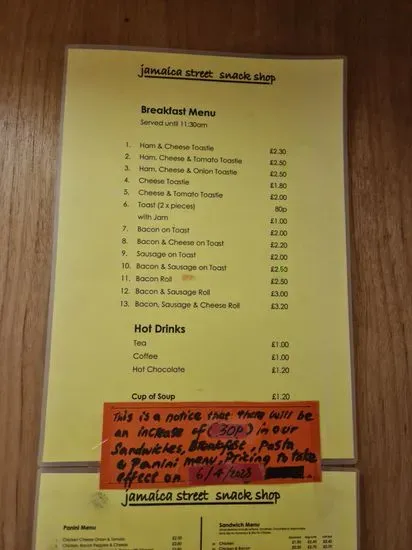 jamaica street snack shop
Breakfast Menu
Served until 11:30am
1. Ham & Cheese Toastie £2.30
2. Ham, Cheese & Tomato Toastie £2.50
3. Ham, Cheese & Onion Toastie £2.50
4. Cheese Toastie £1.80
5. Cheese & Tomato Toastie £2.00
6. Toast (2 x pieces) 80p
with Jam £1.00
7. Bacon on Toast £2.00
8. Bacon & Cheese on Toast £2.20
9. Sausage on Toast £2.00
10. Bacon & Sausage on Toast £2.50
11. Bacon Roll £2.50
12. Bacon & Sausage Roll £3.00
13. Bacon, Sausage & Cheese Roll £3.20
Hot Drinks
Tea £1.00
Coffee £1.00
Hot Chocolate £1.20
Cup of Soup £1.20
This is a notice that there will be
an increase of (30p) in our
Sandwiches, Breakfast, Pasta
& Panini menu. Pricing to take
effect on 6/4/2023
jamaica street snack shop
Panini Menu
Sandwich Menu